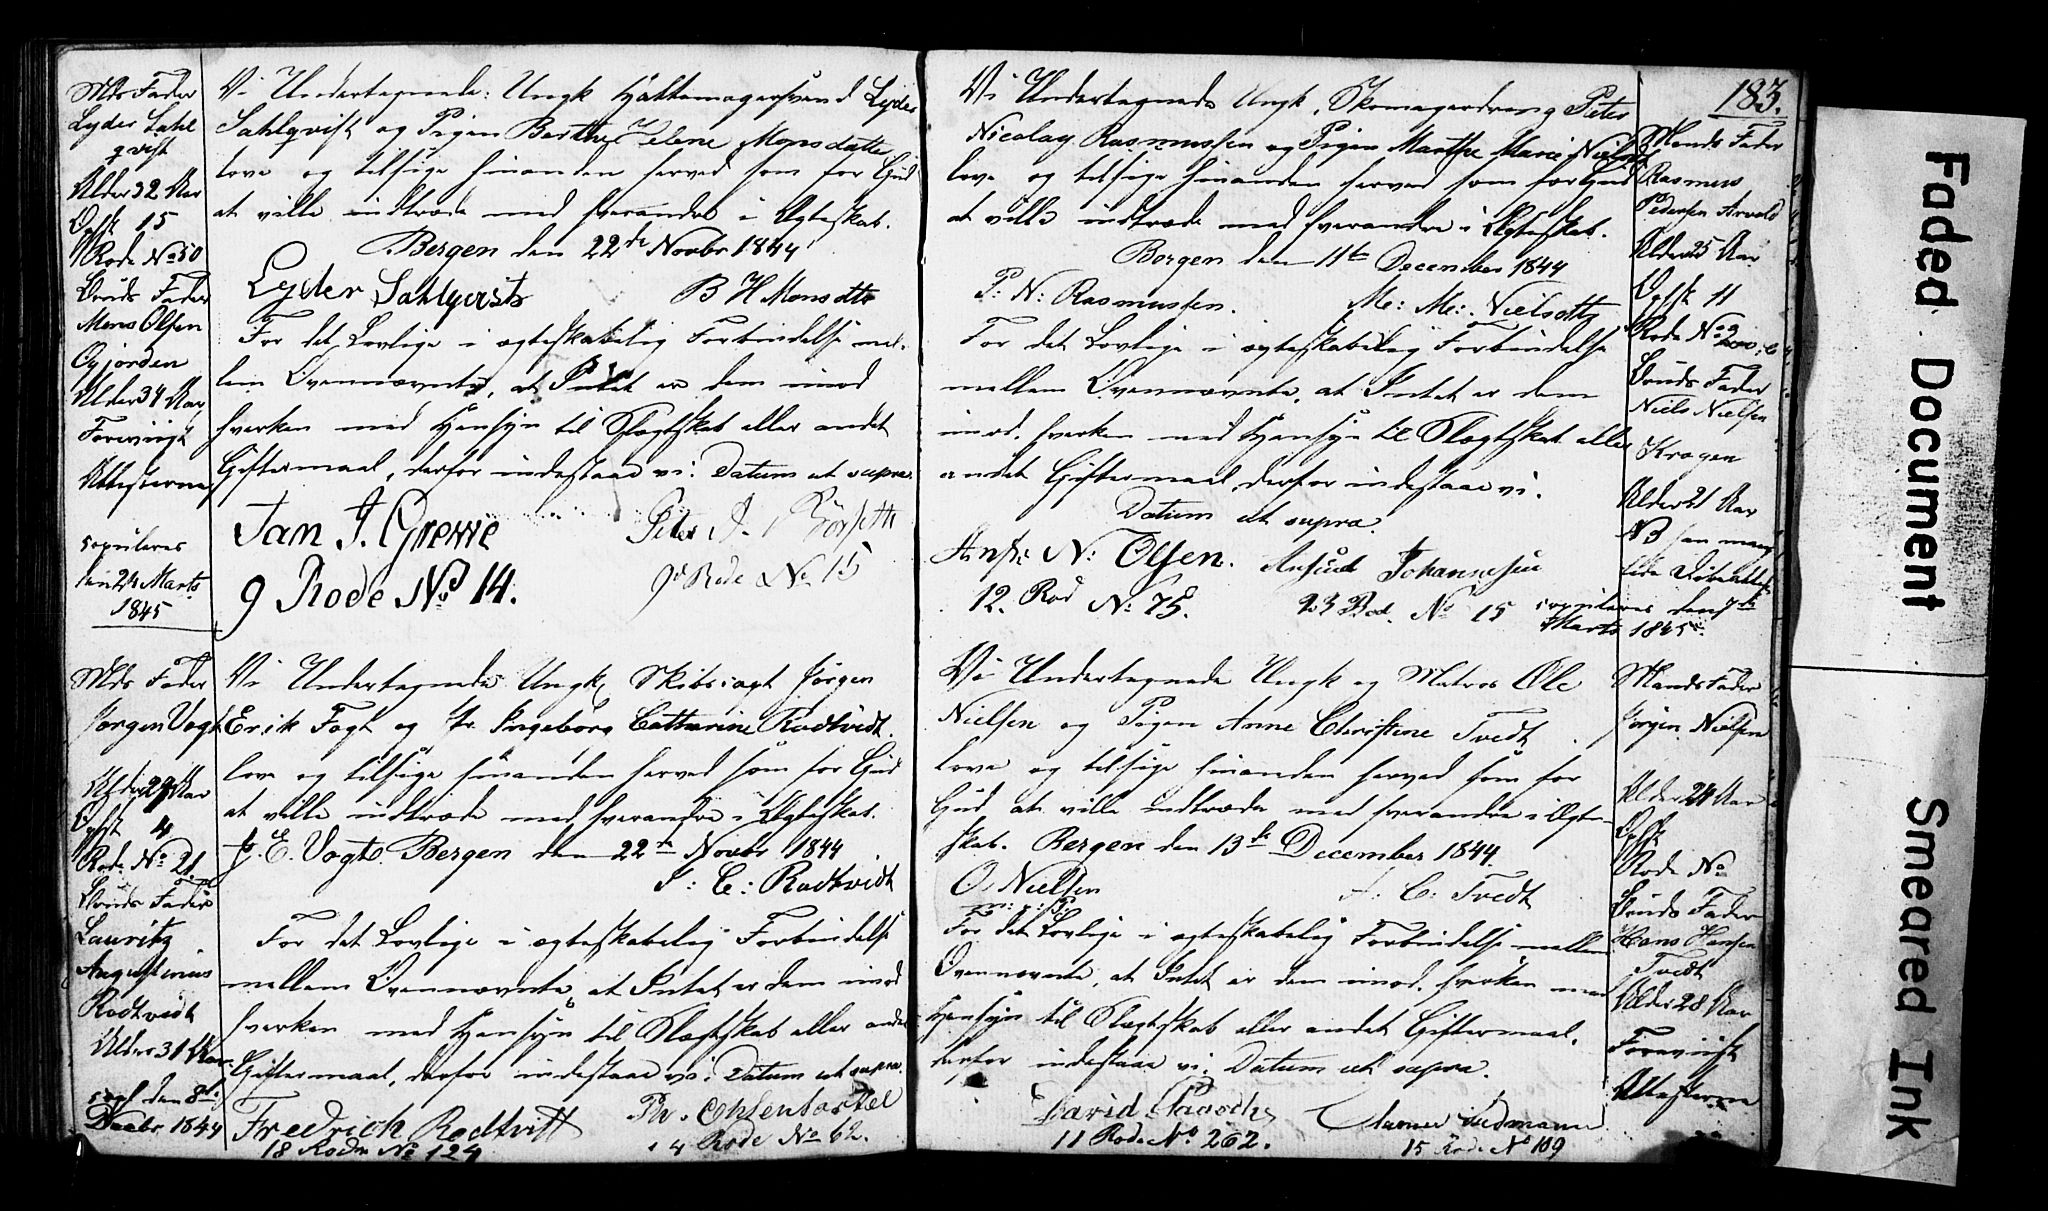 Mds Fader
Lyder Sahl
qvist
Alder 32 Aar
Opsk 15
Rode No 50
Bruds Fader
Mons Olsen
Alder 34 Aar
Foreviist
Attesterne
copuleres
den 24 Marts
1845
Vi Undertegnede: Ungk Hattemagersvend Lyder
Sahlqvist og Pigen Berthe Helene Monsdatter
love og tilsige hinanden herved som for Gud
at ville indtræde med hverandre i Ægteskab.
Bergen den 22de Novbr 1844
Lyder Sahlqvist B H Monsdtr
For det Lovlige i ægteskabelig Forbindelse mel-
lem Ovennævnte, at Intet er dem imod
hverken med Hensyn til Slægtskab eller andet
Giftermaal, derfor indestaae vi. Datum ut supra.
Jan J. Grewe Peter J.
9 Rode No 14. 9de Rode No 15
Mds Fader
Jørgen Vogt
Alder 29 Aar
Opsk 4
Rode No 21
Bruds Fader
Lauritz
Augustinus
Rodtvidt
Alder 31 Aar
copl den 8de
Decbr 1844
Vi Undertegnede Ungk Skibs:agt Jørgen
Erik Fogt og Pr. Ingeborg Catharine Rodtvidt.
love og tilsige hinanden herved som for Gud
at ville indtræde med hverandre i Ægteskab.
J. E. Vogt Bergen den 22de Novbr 1844
I: C: Rodtvidt
For det Lovlige i ægteskabelig Forbindelse
mellem Ovennævnte, at Intet er dem imod
hverken med Hensyn til Slægtskab eller andet
Giftermaal, derfor indestaae vi. Datum ut supra.
Fredrich Rodtvitt Ph. Ohlentostel
18 Rode No 124 14 Rode No 62.
183.
Vi Undertegnede Ungk. Skomagerdreng Peter
Nicolay Rasmussen og Pigen Marthe Marie Nielsd
love og tilsige hinanden herved som for Gud
at ville indtræde med hverandre i Ægteskab.
Bergen den 11te December 1844
P: N: Rasmussen. M: M: Nielsdtr
For det Lovlige i ægteskabelig Forbindelse
mellem Ovennævnte, at Intet er dem
imod, hverken med Hensyn til Slægtskab eller
andet Giftermaal, derfor indestaae vi.
Datum ut supra.
N: Olsen. Johannesen
12. Rod No 75. 23 Rod. No 15
Mands Fader
Rasmus
Pedersen Arvold
Alder 25 Aar
Opsk 11
Rode No 200
Bruds Fader
Niels Nielsen
Krogen
Alder 21 Aar
NB han mang
copuleres den 7de
Marts 1845
Vi Undertegnede Ungk og Matros Ole
Nielsen og Pigen Anne Christine Tvedt
love og tilsige hinanden herved som for
Gud at ville indtræde med hverandre i Ægte-
skab. Bergen den 13de December 1844
O Nielsen A. C. Tvedt
m: p: P:
For det Lovlige i ægteskabelig Forbindelse mellem
Ovennævnte, at Intet er dem imod, hverken med
Hensyn til Slægtskab eller andet Giftermaal,
derfor indestaae vi. Datum ut supra.
David
11 Rode No 262. 15 Rode No 109
Mands Fader
Jørgen Nielsen
Alder 24 Aar
Opsk
Rode No
Bruds Fader
Hans Hansen
Tvedt
Alder 28 Aar
Foreviist
Attesterne
Faded Document
Smeared Ink